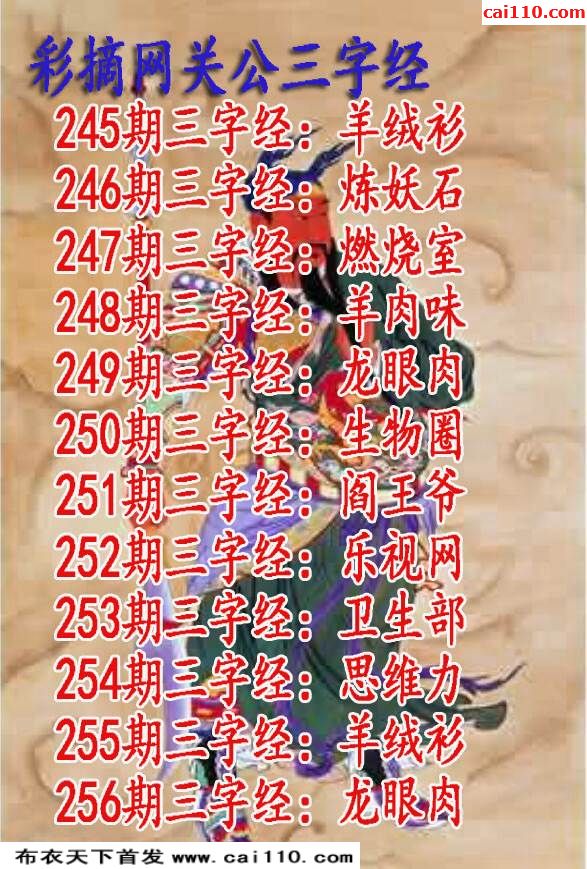 cai110.com
彩摘网关公三字经
245期三字经：羊绒衫
246期三字经：炼妖石
247期三字经：燃烧室
248期三字经：羊肉味
249期三字经：龙眼肉
250期三字经：生物圈
251期三字经：阎王爷
252期三字经：乐视网
253期三字经：卫生部
254期三字经：思维力
255期三字经：羊绒衫
256期三字经：龙眼肉
布衣天下首发 www.cai110.com